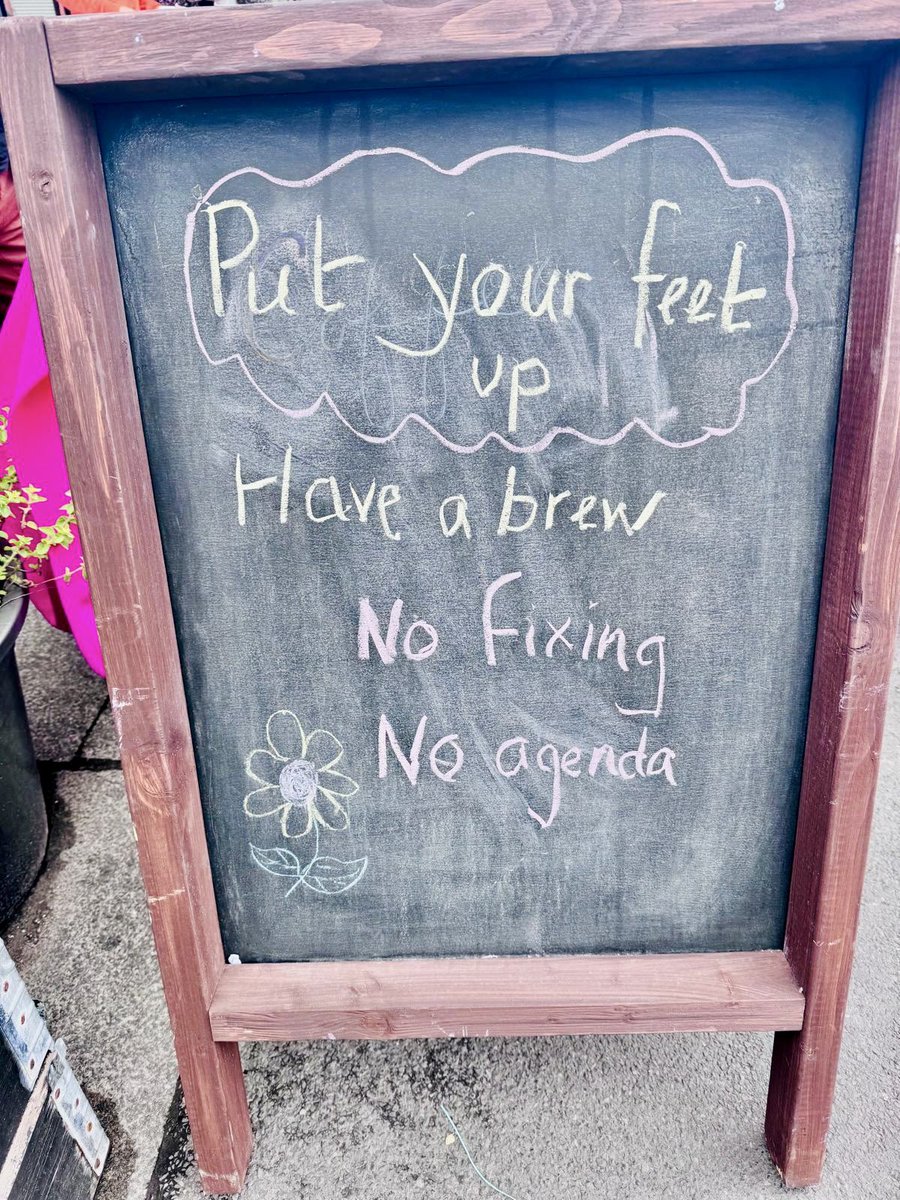 Put your feet
up
Have a brew
No Fixing
No agenda